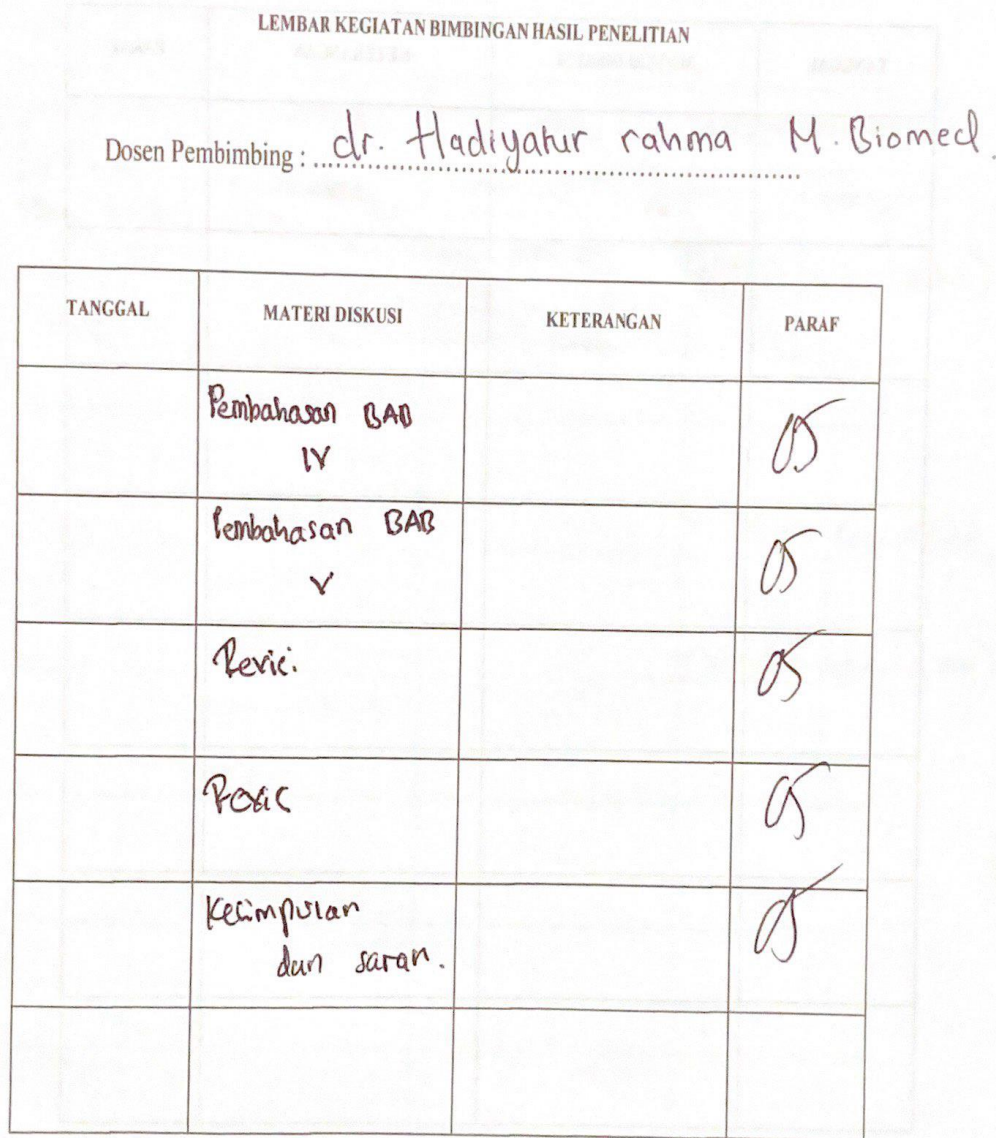 LEMBAR KEGIATAN BIMBINGAN HASIL PENELITIAN
Dosen Pembimbing : dr. Hadiyatur rahma M. Biomed.
TANGGAL MATERI DISKUSI KETERANGAN PARAF
Pembahasan BAB
IV
Pembahasan BAB
V
Revici
Kesimpulan
dan saran.